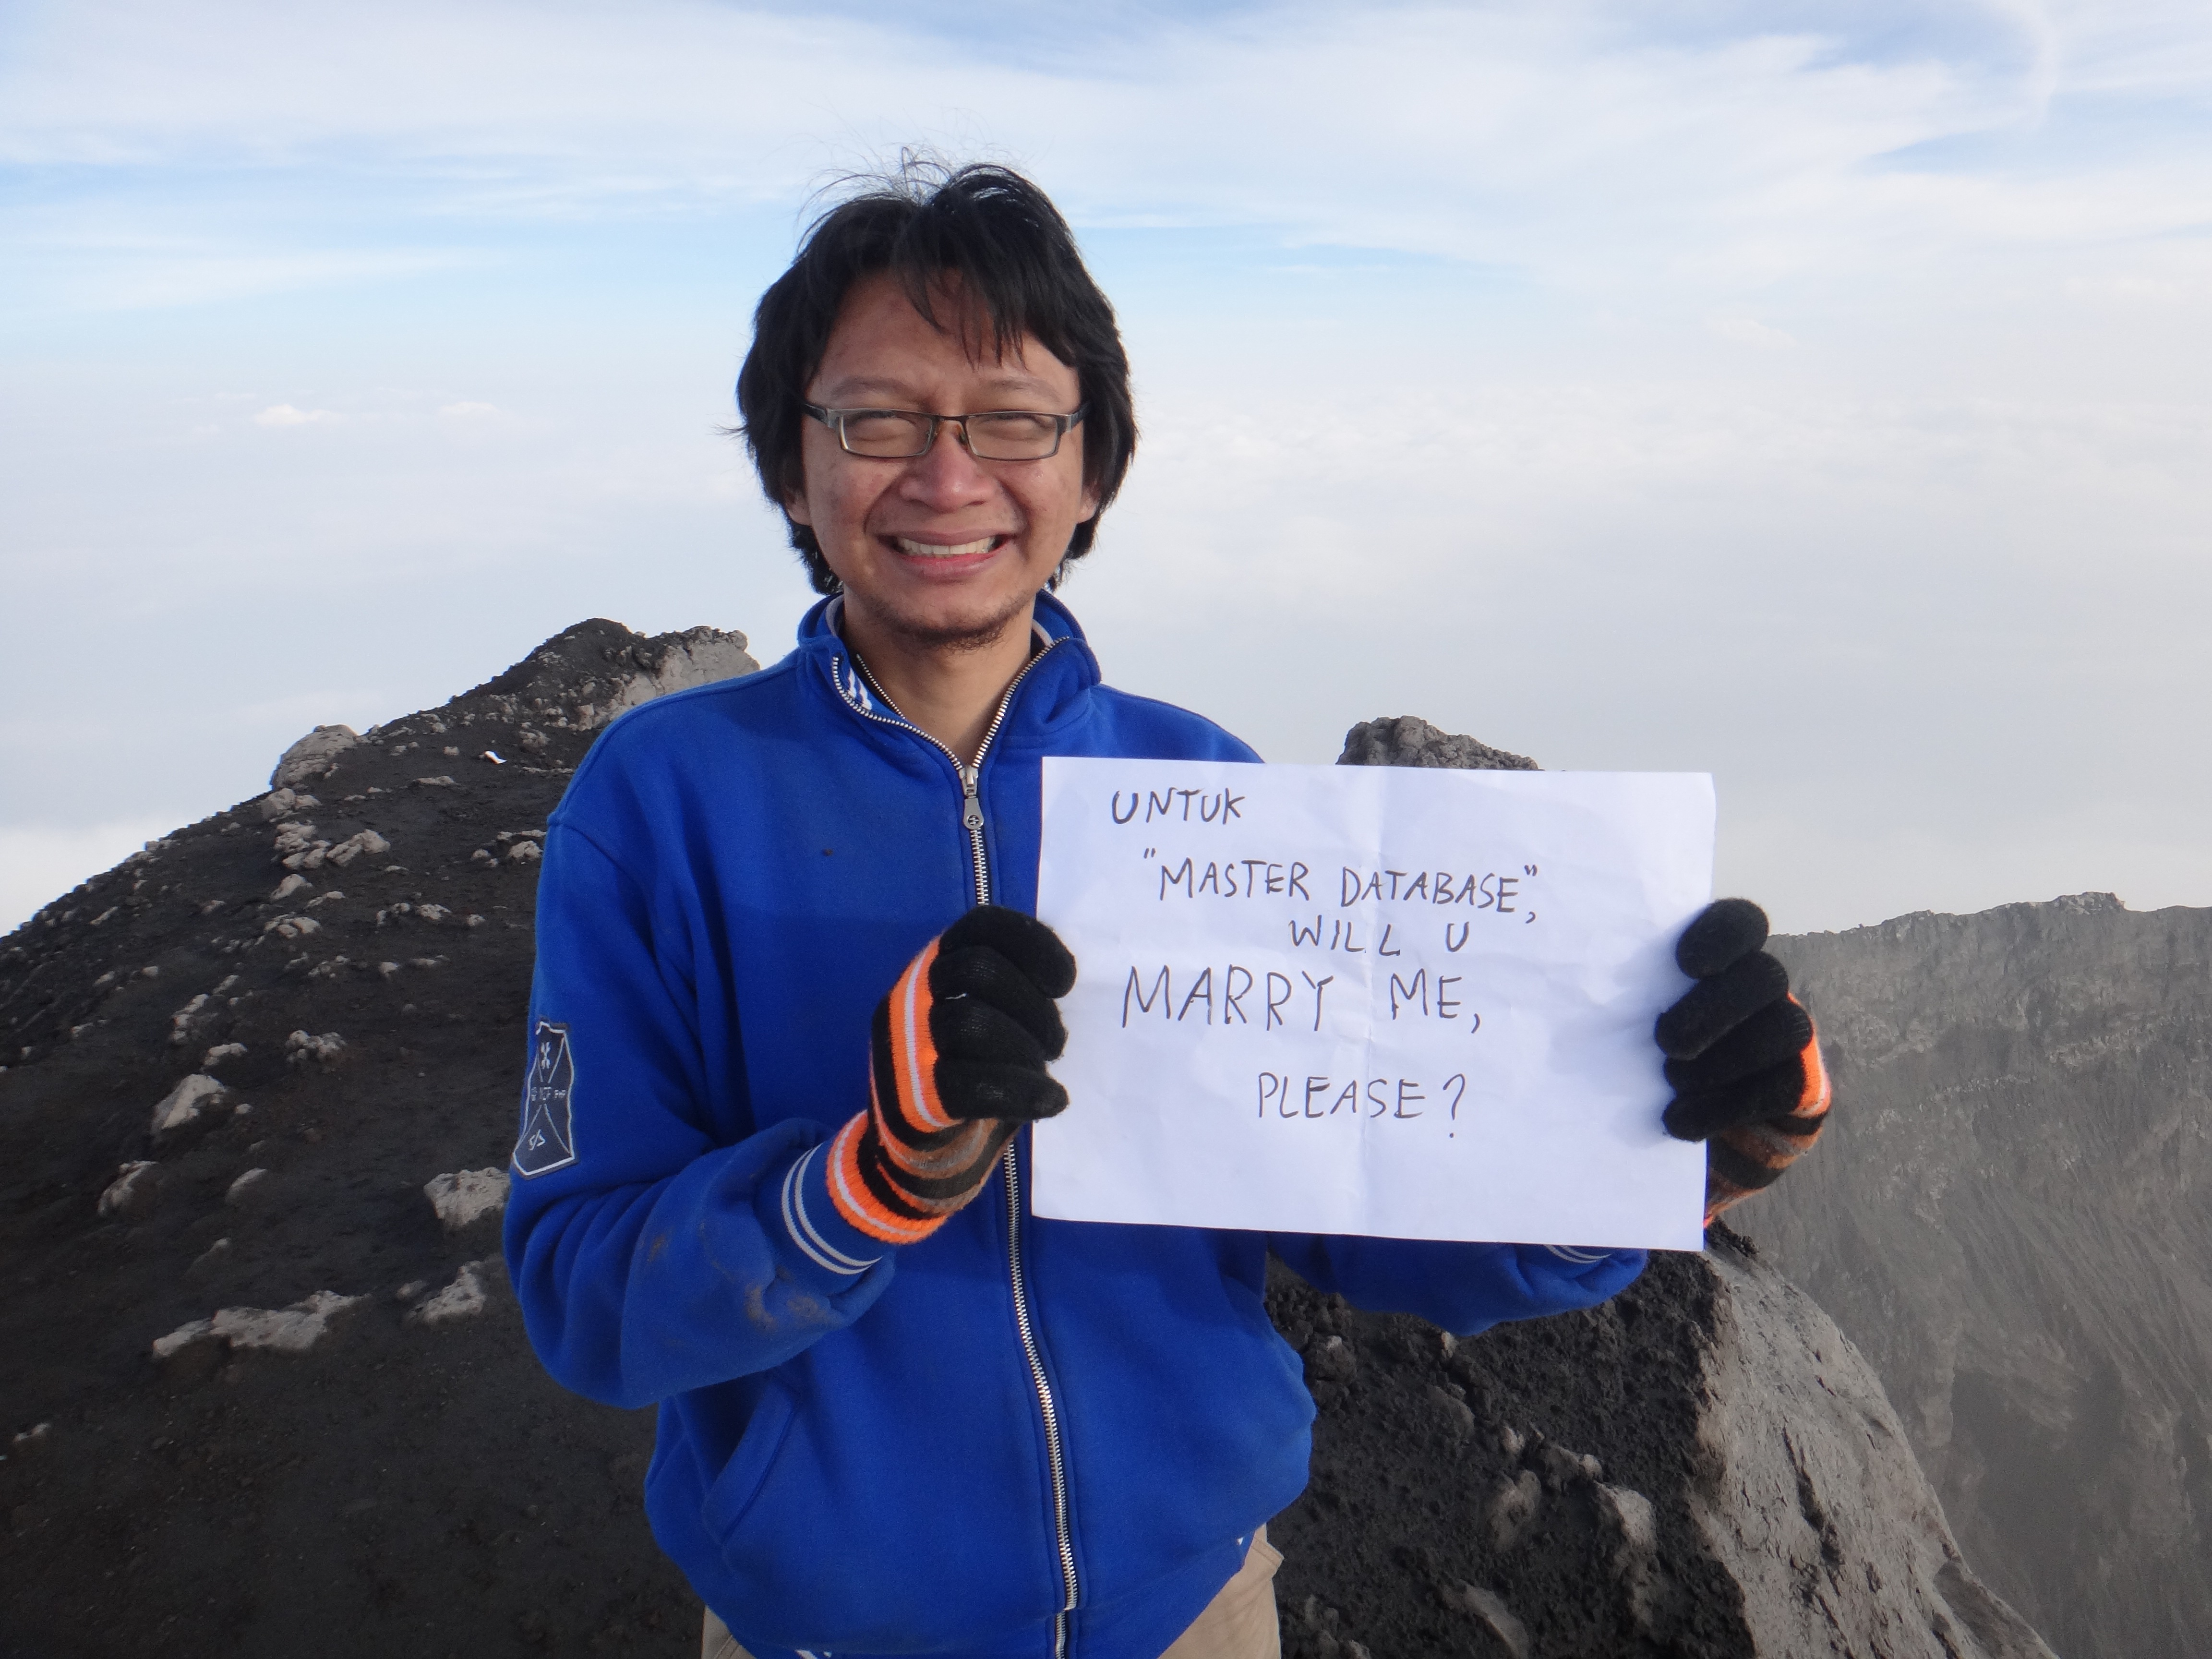 UNTUK
"MASTER DATABASE",
WILL U
MARRY ME,
PLEASE?